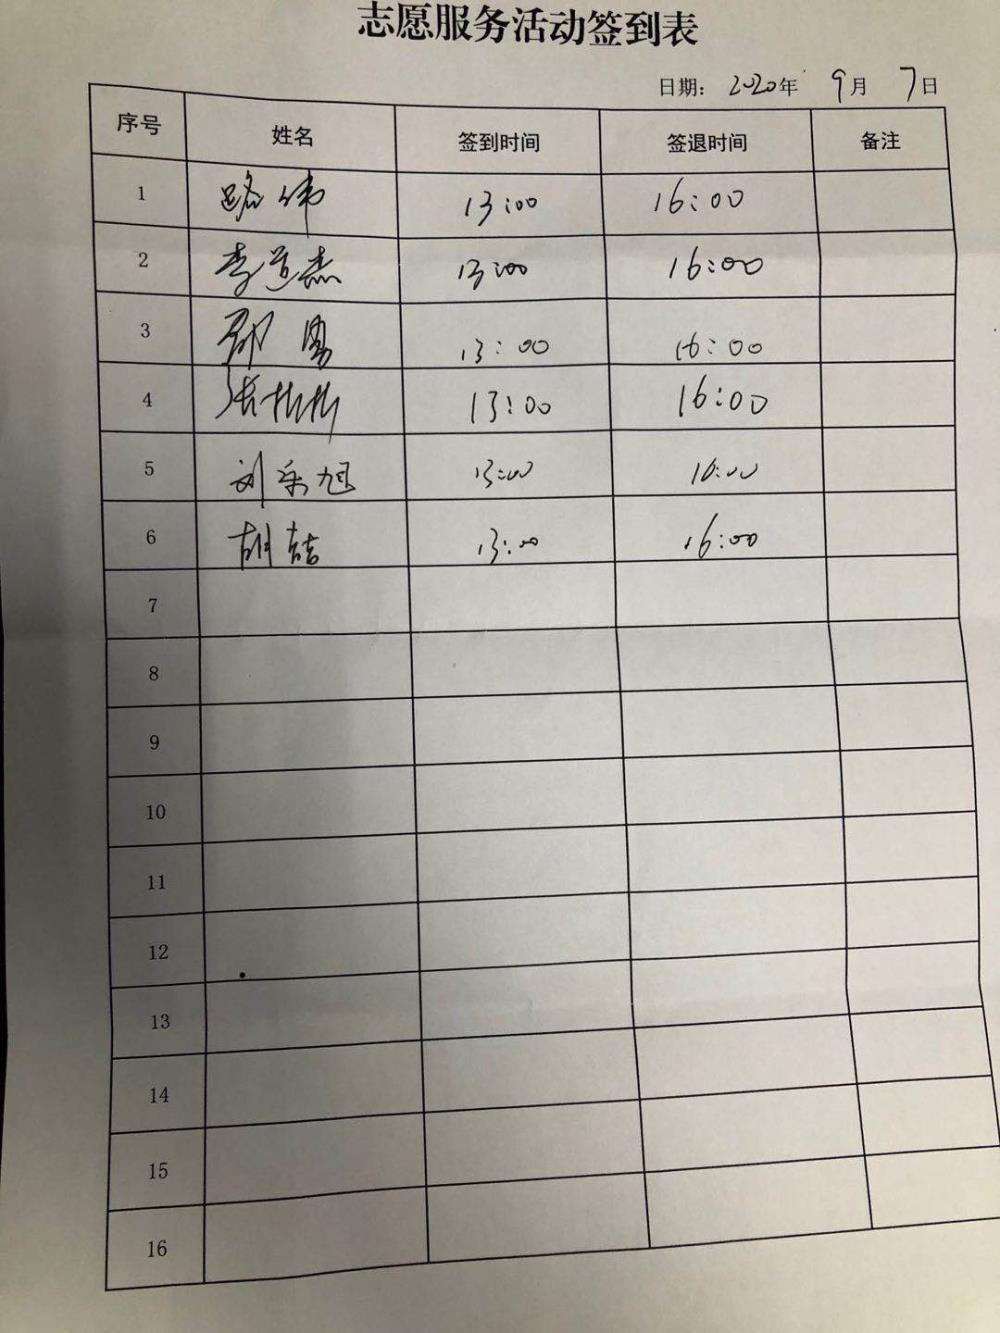 志愿服务活动签到表
日期: 2020年 9月 7日
序号 姓名 签到时间 签退时间 备注
1 路伟 13:00 16:00
2 李道杰 13:00 16:00
3 13:00 16:00
4 张彬彬 13:00 16:00
5 刘乐旭 13:00 16:00
6 胡喆 13:00 16:00
7
8
9
10
11
12
13
14
15
16